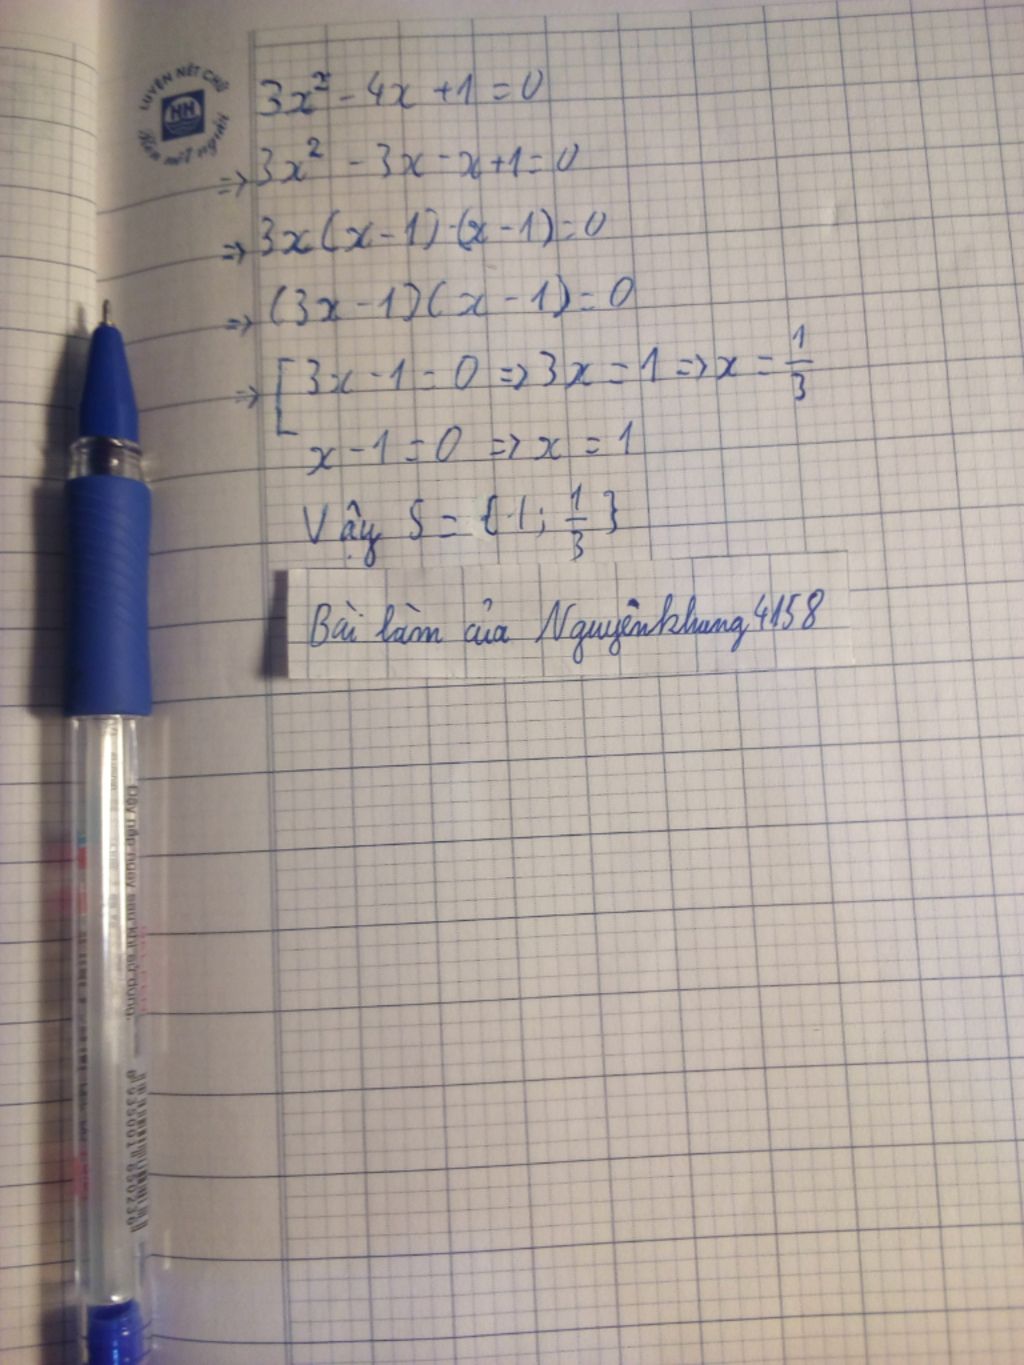 LUYỆN NÉT CHỮ
HN
Rèn nết người
3x² - 4x + 1 = 0
=> 3x² - 3x - x + 1 = 0
=> 3x(x - 1) - (x - 1) = 0
=> (3x - 1)(x - 1) = 0
=> [ 3x - 1 = 0 => 3x = 1 => x = 1/3
x - 1 = 0 => x = 1
Vậy S = {1; 1/3}
Bài làm của Nguyênkhung4158
Đậy nắp ngay sau khi sử dụng.